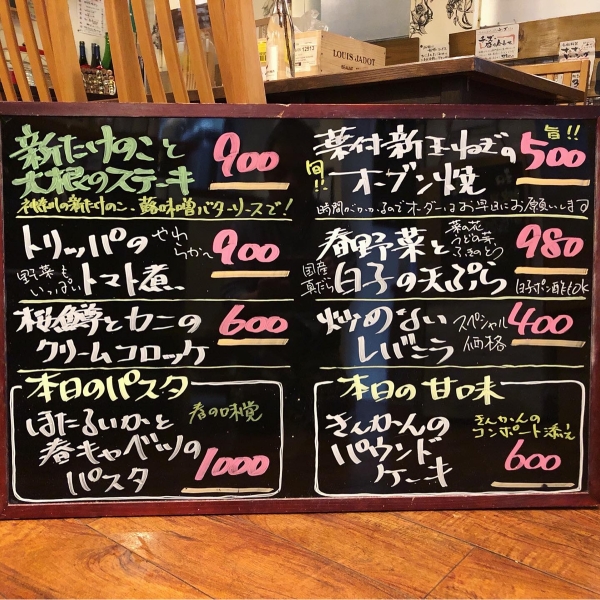 新たけのこと
大根のステーキ
900
神奈川の新たけのこ、蕗味噌バターソースで!
トリッパの
やわらか〜
野菜も
いっぱい
トマト煮、
900
桜鱒とカニの
クリームコロッケ
600
本日のパスタ
ほたるいかと
春キャベツの
パスタ
春の味覚
1000
葉付新玉ねぎの
旬!!
オーブン焼
旨!!
500
時間がかかるのでオーダーはお早目にお願いします
春野菜と
菜の花
うどの芽、
ふきのとう
国産
真だら
白子の天ぷら
980
白子ポン酢もOK
炒めない
レバニラ
スペシャル
価格
400
本日の甘味
きんかんの
パウンド
ケーキ
きんかんの
コンポート添え
600
LOUIS JADOT
12912